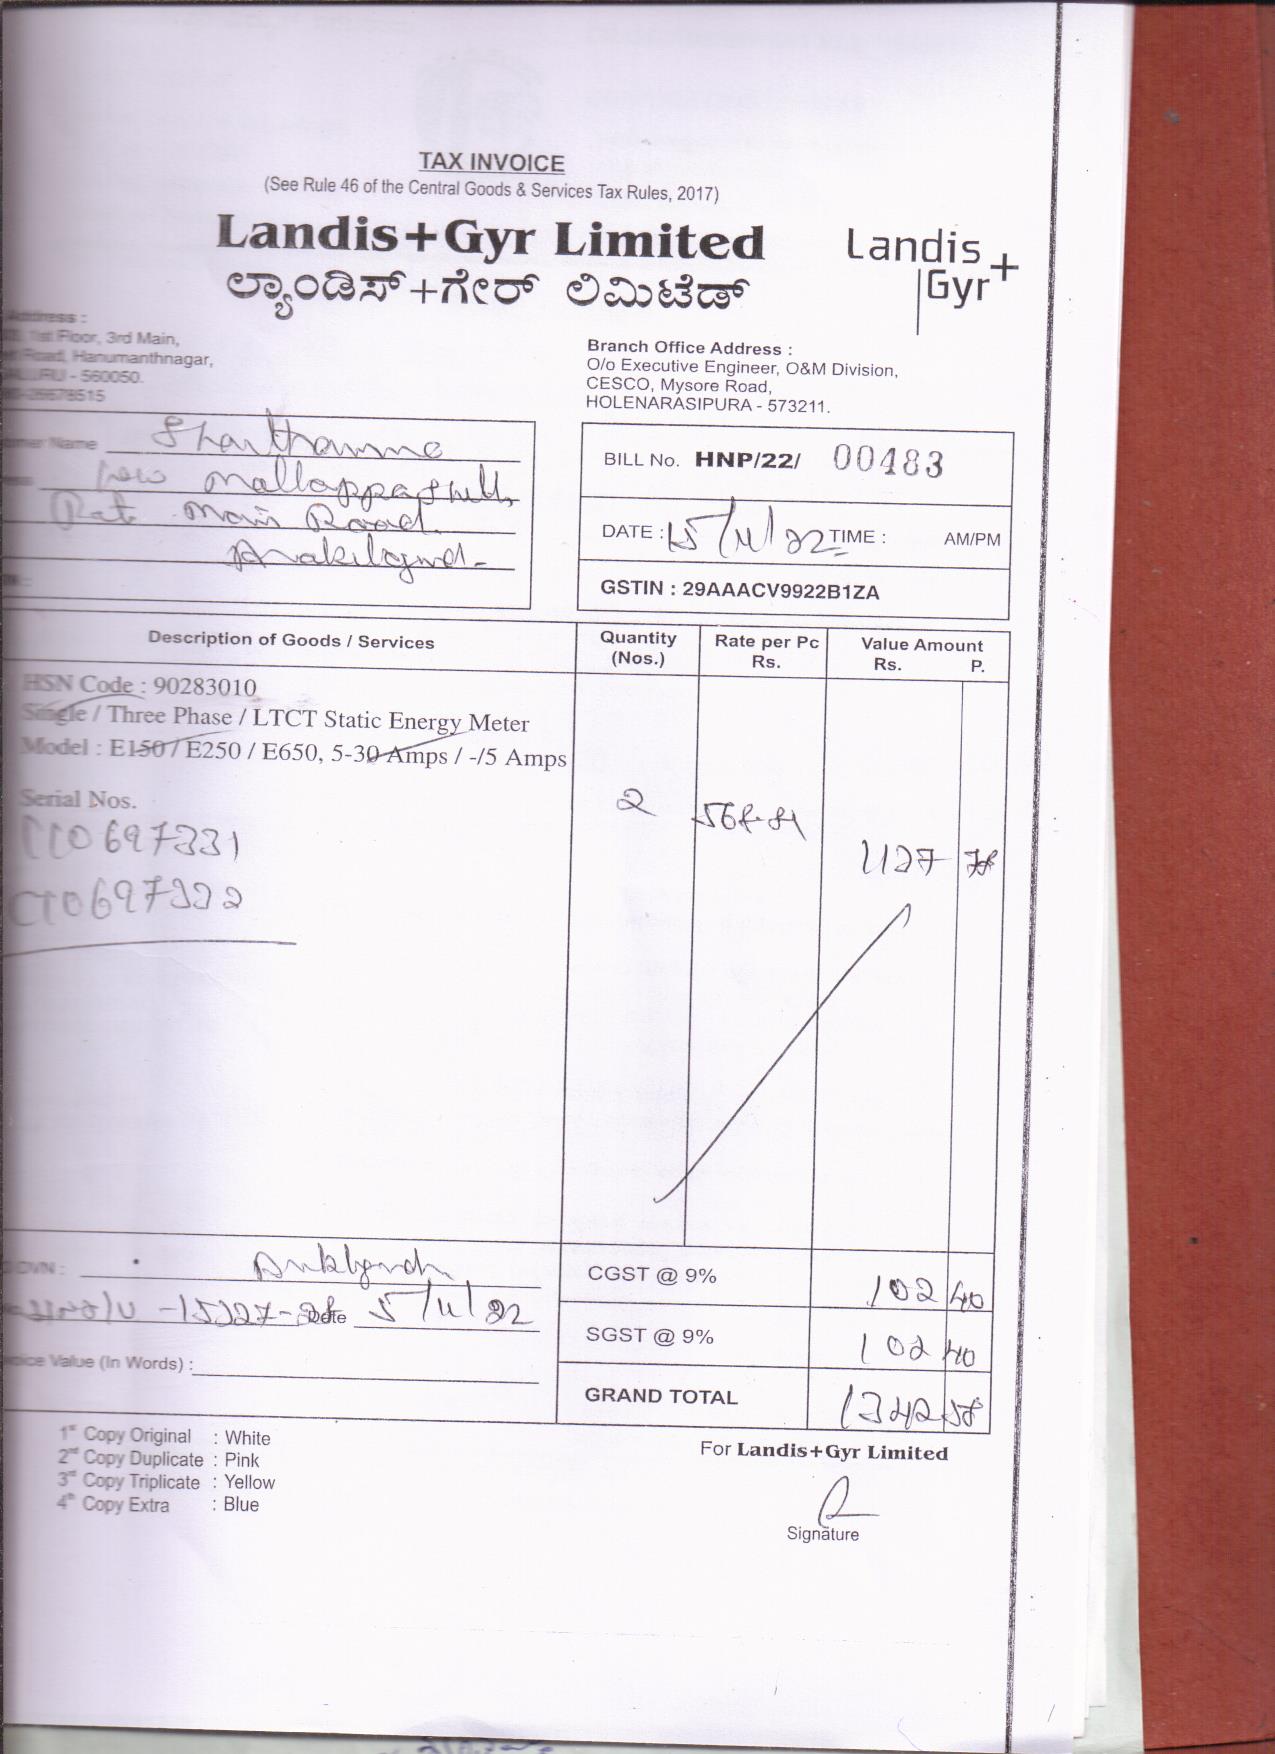 TAX INVOICE
(See Rule 46 of the Central Goods & Services Tax Rules, 2017)
Landis+Gyr Limited
ಲ್ಯಾಂಡಿಸ್+ಗೇರ್ ಲಿಮಿಟೆಡ್
Landis+
Gyr
Address :
1st Floor, 3rd Main,
Road, Hanumanthnagar,
- 560050.
26678515
Branch Office Address :
O/o Executive Engineer, O&M Division,
CESCO, Mysore Road,
HOLENARASIPURA - 573211.
Name Shanthamma
Mallappa
Main Road
BILL No. HNP/22/ 00483
DATE : 15/11/22 TIME : AM/PM
GSTIN : 29AAACV9922B1ZA
Description of Goods / Services
Quantity (Nos.)
Rate per Pc Rs.
Value Amount Rs. P.
HSN Code : 90283010
Single / Three Phase / LTCT Static Energy Meter
Model : E150 / E250 / E650, 5-30 Amps / -/5 Amps
Serial Nos.
2
1137 78
CGST @ 9% 102 40
Date 5/11/22
SGST @ 9% 102 40
Value (In Words) :
GRAND TOTAL 1342 58
1st Copy Original : White
2nd Copy Duplicate : Pink
3rd Copy Triplicate : Yellow
4th Copy Extra : Blue
For Landis+Gyr Limited
Signature